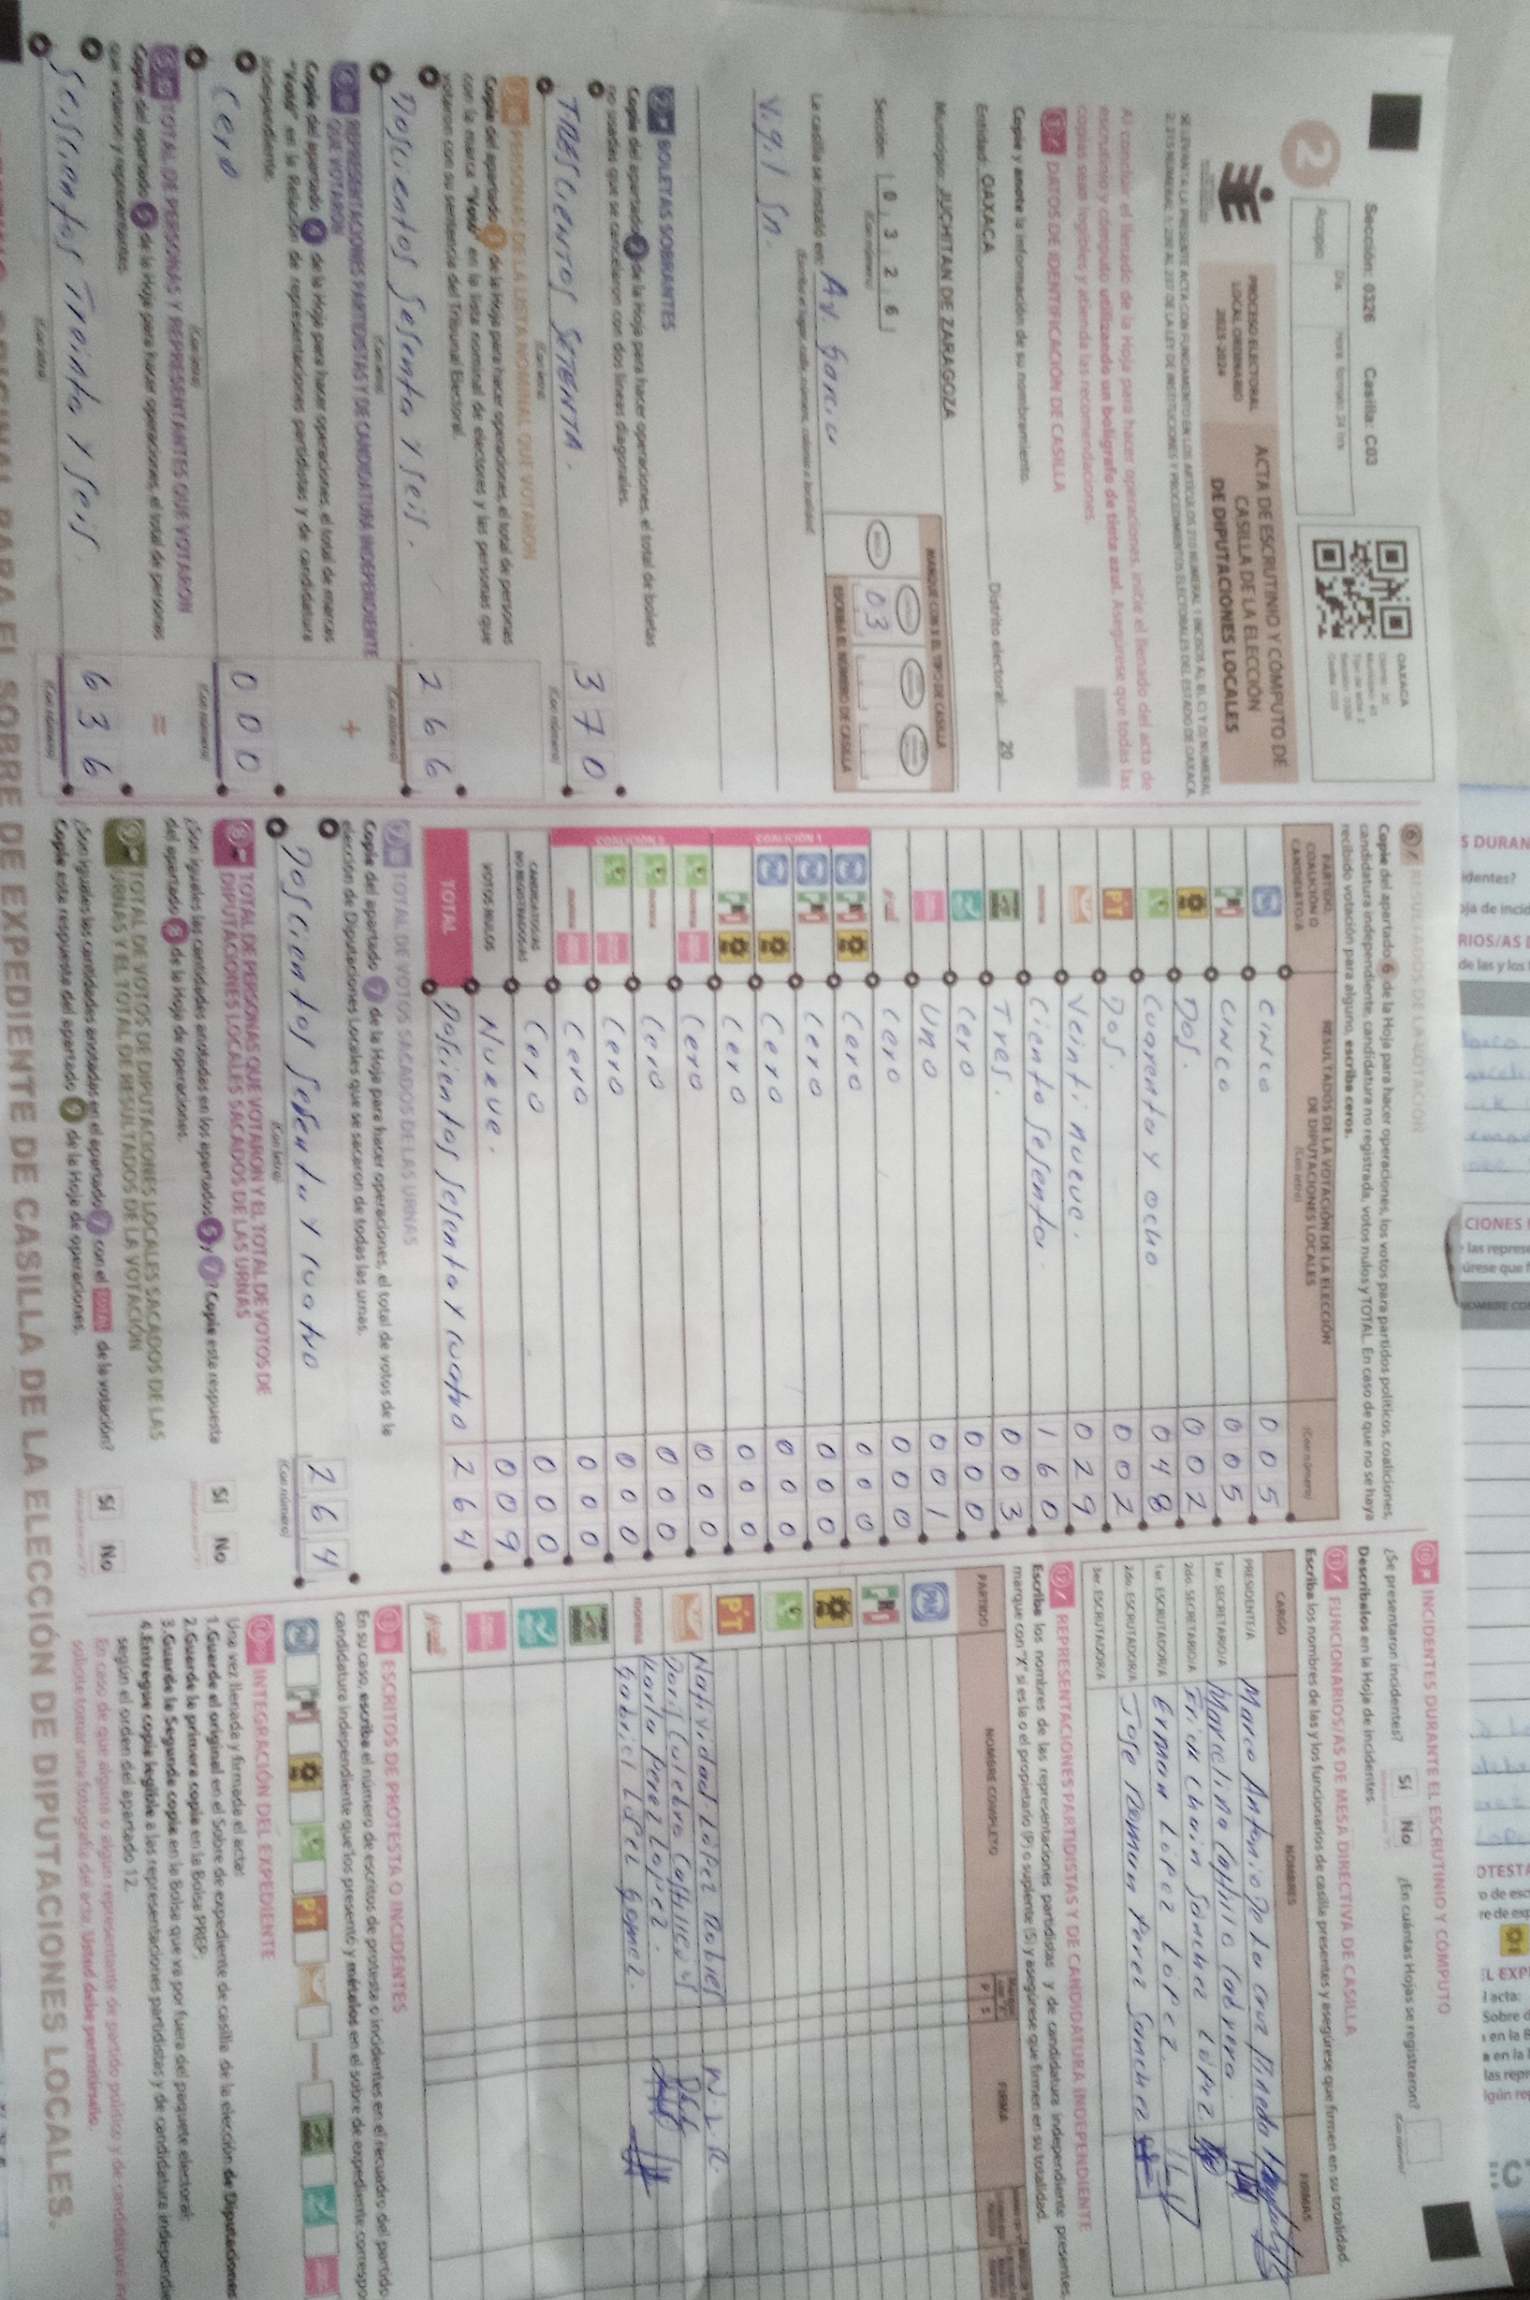 Sección: 0326 Casilla: C03
OAXACA
2
Acopio
Día
PROCESO ELECTORAL
LOCAL ORDINARIO
2023-2024
ACTA DE ESCRUTINIO Y CÓMPUTO DE
CASILLA DE LA ELECCIÓN
DE DIPUTACIONES LOCALES
Al concluir el llenado de la Hoja para hacer operaciones, inicie el llenado del acta de
escrutinio y cómputo utilizando un bolígrafo de tinta azul. Asegúrese que todas las
copias sean legibles y atienda las recomendaciones.
1 DATOS DE IDENTIFICACIÓN DE CASILLA
Copie y anote la información de su nombramiento.
Entidad: OAXACA Distrito electoral: 20
Municipio: JUCHITAN DE ZARAGOZA
Sección: 0 3 2 6
(Con número)
MARQUE CON X EL TIPO DE CASILLA
03
ESCRIBA EL NÚMERO DE CASILLA
La casilla se instaló en: AV. Garcia
Vigil Sn.
2 BOLETAS SOBRANTES
Copie del apartado 2 de la Hoja para hacer operaciones, el total de boletas
no usadas que se cancelaron con dos líneas diagonales.
TRESCIENTOS SETENTA. 3 7 0
(Con letra) (Con número)
3 PERSONAS DE LA LISTA NOMINAL QUE VOTARON
Copie del apartado 3 de la Hoja para hacer operaciones, el total de personas
con la marca "Votó" en la lista nominal de electores y las personas que
votaron con su sentencia del Tribunal Electoral.
Doscientos Sesenta y Seis. 2 6 6
(Con letra) (Con número)
4 REPRESENTACIONES PARTIDISTAS Y DE CANDIDATURA INDEPENDIENTE
QUE VOTARON
Copie del apartado 4 de la Hoja para hacer operaciones, el total de marcas
"Votó" en la Relación de representaciones partidistas y de candidatura
independiente.
+
Cero 0 0 0
(Con letra) (Con número)
5 TOTAL DE PERSONAS Y REPRESENTANTES QUE VOTARON
Copie del apartado 5 de la Hoja para hacer operaciones, el total de personas
que votaron y representantes.
=
Seiscientos Treinta y Seis. 6 3 6
(Con letra) (Con número)
6 RESULTADOS DE LA VOTACIÓN
Copie del apartado 6 de la Hoja para hacer operaciones, los votos para partidos políticos, coaliciones,
candidatura independiente, candidatura no registrada, votos nulos y TOTAL. En caso de que no se haya
recibido votación para alguno, escriba ceros.
PARTIDO, COALICIÓN O CANDIDATO/A
RESULTADOS DE LA VOTACIÓN DE LA ELECCIÓN
DE DIPUTACIONES LOCALES
(Con letra) (Con número)
PAN CINCO 0 0 5
PRI CINCO 0 0 5
DOS. 0 0 2
Cuarenta y ocho 0 4 8
PT Dos. 0 0 2
Veinti nueve. 0 2 9
morena Ciento Sesenta. 1 6 0
Tres. 0 0 3
Cero 0 0 0
Uno 0 0 1
Cero 0 0 0
COALICIÓN 1
PAN PRI Cero 0 0 0
PAN PRI Cero 0 0 0
PAN Cero 0 0 0
PRI Cero 0 0 0
COALICIÓN 2
Cero 0 0 0
Cero 0 0 0
Cero 0 0 0
Cero 0 0 0
CANDIDATOS/AS
NO REGISTRADOS/AS Cero 0 0 0
VOTOS NULOS Nueve. 0 0 9
TOTAL Doscientos Sesenta y cuatro 2 6 4
7 TOTAL DE VOTOS SACADOS DE LAS URNAS
Copie del apartado 7 de la Hoja para hacer operaciones, el total de votos de la
elección de Diputaciones Locales que se sacaron de todas las urnas.
Doscientos Sesenta y cuatro 2 6 4
(Con letra) (Con número)
8 TOTAL DE PERSONAS QUE VOTARON Y EL TOTAL DE VOTOS DE
DIPUTACIONES LOCALES SACADOS DE LAS URNAS
¿Son iguales las cantidades anotadas en los apartados 5 y 7? Copie esta respuesta
del apartado 8 de la Hoja de operaciones.
Sí No
9 TOTAL DE VOTOS DE DIPUTACIONES LOCALES SACADOS DE LAS
URNAS Y EL TOTAL DE RESULTADOS DE LA VOTACIÓN
¿Son iguales las cantidades anotadas en el apartado 7 con el TOTAL de la votación?
Copie esta respuesta del apartado 9 de la Hoja de operaciones.
Sí No
10 INCIDENTES DURANTE EL ESCRUTINIO Y CÓMPUTO
¿Se presentaron incidentes? Sí No ¿En cuántas Hojas se registraron?
Descríbalos en la Hoja de incidentes.
11 FUNCIONARIOS/AS DE MESA DIRECTIVA DE CASILLA
Escriba los nombres de las y los funcionarios de casilla presentes y asegúrese que firmen en su totalidad.
CARGO NOMBRES FIRMAS
PRESIDENTE/A Marco Antonio De La Cruz Pineda
1er. SECRETARIO/A Marcelino Castillo Cabrera
2do. SECRETARIO/A Erick Chain Sanchez López.
1er. ESCRUTADOR/A Erman López López.
2do. ESCRUTADOR/A Jose Roman Perez Sanchez
3er. ESCRUTADOR/A
12 REPRESENTACIONES PARTIDISTAS Y DE CANDIDATURA INDEPENDIENTE
Escriba los nombres de las representaciones partidistas y de candidatura independiente presentes,
marque con "X" si es la o el propietario (P) o suplente (S) y asegúrese que firmen en su totalidad.
PARTIDO NOMBRE COMPLETO P S FIRMA
PAN
PRI
PT Natividad López Robles N.L.R.
Karla Perez Lopez.
morena Gabriel López Gomez.
13 ESCRITOS DE PROTESTA O INCIDENTES
En su caso, escriba el número de escritos de protesta o incidentes en el recuadro del partido
candidatura independiente que los presentó y métalos en el sobre de expediente correspo
PAN PRI PT
14 INTEGRACIÓN DEL EXPEDIENTE
Una vez llenada y firmada el acta:
1. Guarde el original en el Sobre de expediente de casilla de la elección de Diputaciones
2. Guarde la primera copia en la Bolsa PREP.
3. Guarde la Segunda copia en la Bolsa que va por fuera del paquete electoral.
4. Entregue copia legible a las representaciones partidistas y de candidatura independie
según el orden del apartado 12.
En caso de que alguna o algún representante de partido político y de candidatura in
solicite tomar una fotografía del acta, Usted debe permitírselo.
SOBRE DE EXPEDIENTE DE CASILLA DE LA ELECCIÓN DE DIPUTACIONES LOCALES.
S DURAN
identes?
oja de incid
RIOS/AS
de las y los
CIONES
las represe
úrese que f
OTESTA
L EXP
l acta:
Sobre d
en la B
a en la
las repr
lgún re